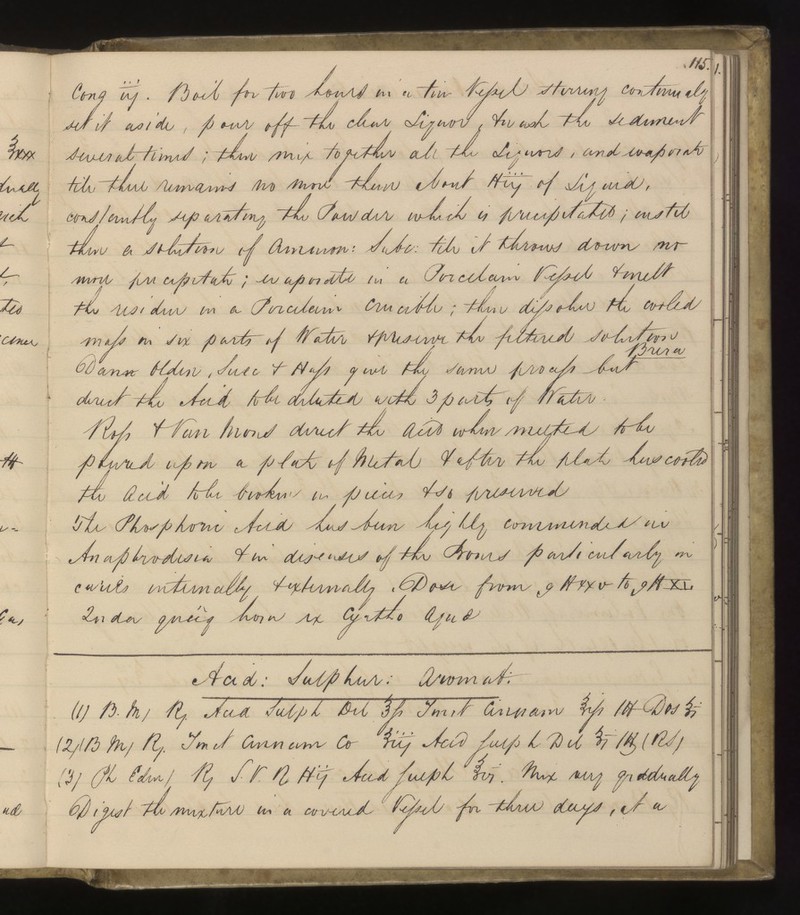 115.
Cong iij. Boil for two hours in a tin Vessel stirring continualy
set it aside, pour off the clear Liquor, & wash the sediment
several times; then mix together all the Liquors, and evaporate
till there remains no more than about ℔iij of Liquid,
constantly separating the Powder which is precipitated; instil
then a solution of Ammon: Subc: till it throws down no
more precipitate; evaporate in a Porcelain Vessel & melt
the residue in a Porcelain Crucible; then dissolve the cooled
mass in six parts of Water & preserve the filtered solution
Dann Olden, Suec & Hass give the same process but Brera
direct the Acid to be diluted with 3 parts of Water
Ross & Van Mons direct the acid when melted to be
poured upon a plate of Metal & after the plate has cooled
the acid to be broken in pieces & so preserved
The Phosphoric Acid has been highly commended in
Anaphrodisia & in diseases of the Bones particularly in
caries internally & externally. Dose from gtt xxv to gtt XL
2nda horâ ex Cyatho Aquæ
Acid: Sulphur: Aromat:
(1) B. M) ℞ Acid Sulph Dil ℥ſs Tinct Cinnam M Dos ʒi
(2) (B M) ℞. Tinct Cinnam Co ℥iij Acid Sulph Dil ℥i M (RS)
(3) Ph Edin) ℞ S. V. R ℔ij Acid Sulph ℥vj. Mix very gradually
Digest the mixture in a covered Vessel for three days, at a